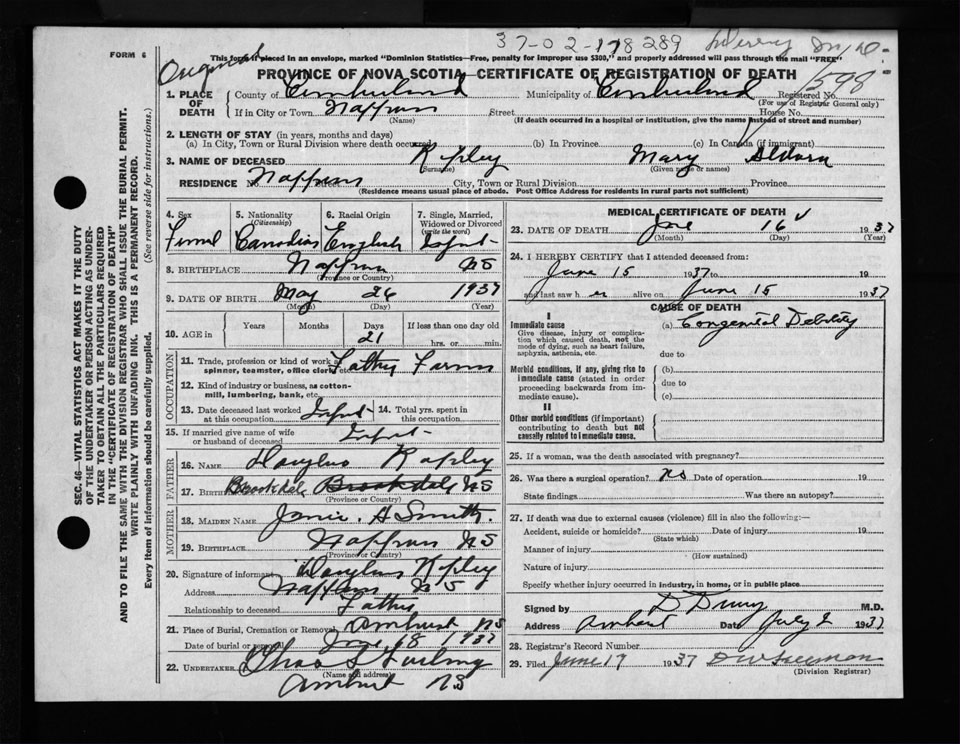 37-02-178289
FORM 6
This form if placed in an envelope, marked "Dominion Statistics—Free, penalty for improper use $300," and properly addressed will pass through the mail "FREE"
Original
PROVINCE OF NOVA SCOTIA—CERTIFICATE OF REGISTRATION OF DEATH
1598
1. PLACE OF DEATH
County of Cumberland Municipality of Cumberland Registered No.
(For use of Registrar General only)
If in City or Town Nappan Street House No.
(Name) (If death occurred in a hospital or institution, give the name instead of street and number)
2. LENGTH OF STAY (in years, months and days)
(a) In City, Town or Rural Division where death occurred (b) In Province (c) In Canada (if immigrant)
3. NAME OF DECEASED Ripley Mary
(Surname) (Given name or names)
RESIDENCE Nappan City, Town or Rural Division Province
(Residence means usual place of abode. Post Office Address for residents in rural parts not sufficient)
4. Sex 5. Nationality (Citizenship) 6. Racial Origin 7. Single, Married, Widowed or Divorced (write the word)
Female Canadian English Infant
8. BIRTHPLACE Nappan NS
(Province or Country)
9. DATE OF BIRTH May 26 1937
(Month) (Day) (Year)
10. AGE in Years Months Days 21 If less than one day old hrs. or min.
OCCUPATION
11. Trade, profession or kind of work as spinner, teamster, office clerk, etc. Father Farm
12. Kind of industry or business, as cotton-mill, lumbering, bank, etc.
13. Date deceased last worked at this occupation Infant 14. Total yrs. spent in this occupation
15. If married give name of wife or husband of deceased Infant
FATHER
16. NAME Douglas Ripley
17. BIRTHPLACE Brookdale Brookdale NS
(Province or Country)
MOTHER
18. MAIDEN NAME Janie. A Smith.
19. BIRTHPLACE Nappan NS
(Province or Country)
20. Signature of informant Douglas Ripley
Address Nappan NS
Relationship to deceased Father
21. Place of Burial, Cremation or Removal Amherst NS
Date of burial or removal June 18 1937
22. UNDERTAKER Chas
(Name and address)
Amherst NS
MEDICAL CERTIFICATE OF DEATH
23. DATE OF DEATH June 16 1937
(Month) (Day) (Year)
24. I HEREBY CERTIFY that I attended deceased from:
June 15 1937 to 19
and last saw h er alive on June 15 1937
CAUSE OF DEATH
I
Immediate cause (a) Congenital Debility
Give disease, injury or complication which caused death, not the mode of dying, such as heart failure, asphyxia, asthenia, etc.
due to
Morbid conditions, if any, giving rise to immediate cause (stated in order proceeding backwards from immediate cause).
(b)
due to
(c)
II
Other morbid conditions (if important) contributing to death but not causally related to immediate cause.
25. If a woman, was the death associated with pregnancy?
26. Was there a surgical operation? No Date of operation 19
State findings Was there an autopsy?
27. If death was due to external causes (violence) fill in also the following:—
Accident, suicide or homicide? Date of injury 19
(State which)
Manner of injury
(How sustained)
Nature of injury
Specify whether injury occurred in industry, in home, or in public place
Signed by D Drury M.D.
Address Amherst Date July 2 1937
28. Registrar's Record Number
29. Filed June 17 1937
(Division Registrar)
SEC. 46—VITAL STATISTICS ACT MAKES IT THE DUTY
OF THE UNDERTAKER OR PERSON ACTING AS UNDER-
TAKER TO OBTAIN ALL THE PARTICULARS REQUIRED
IN THE "CERTIFICATE OF REGISTRATION OF DEATH"
AND TO FILE THE SAME WITH THE DIVISION REGISTRAR WHO SHALL ISSUE THE BURIAL PERMIT.
WRITE PLAINLY WITH UNFADING INK. THIS IS A PERMANENT RECORD.
Every item of information should be carefully supplied. (See reverse side for instructions.)